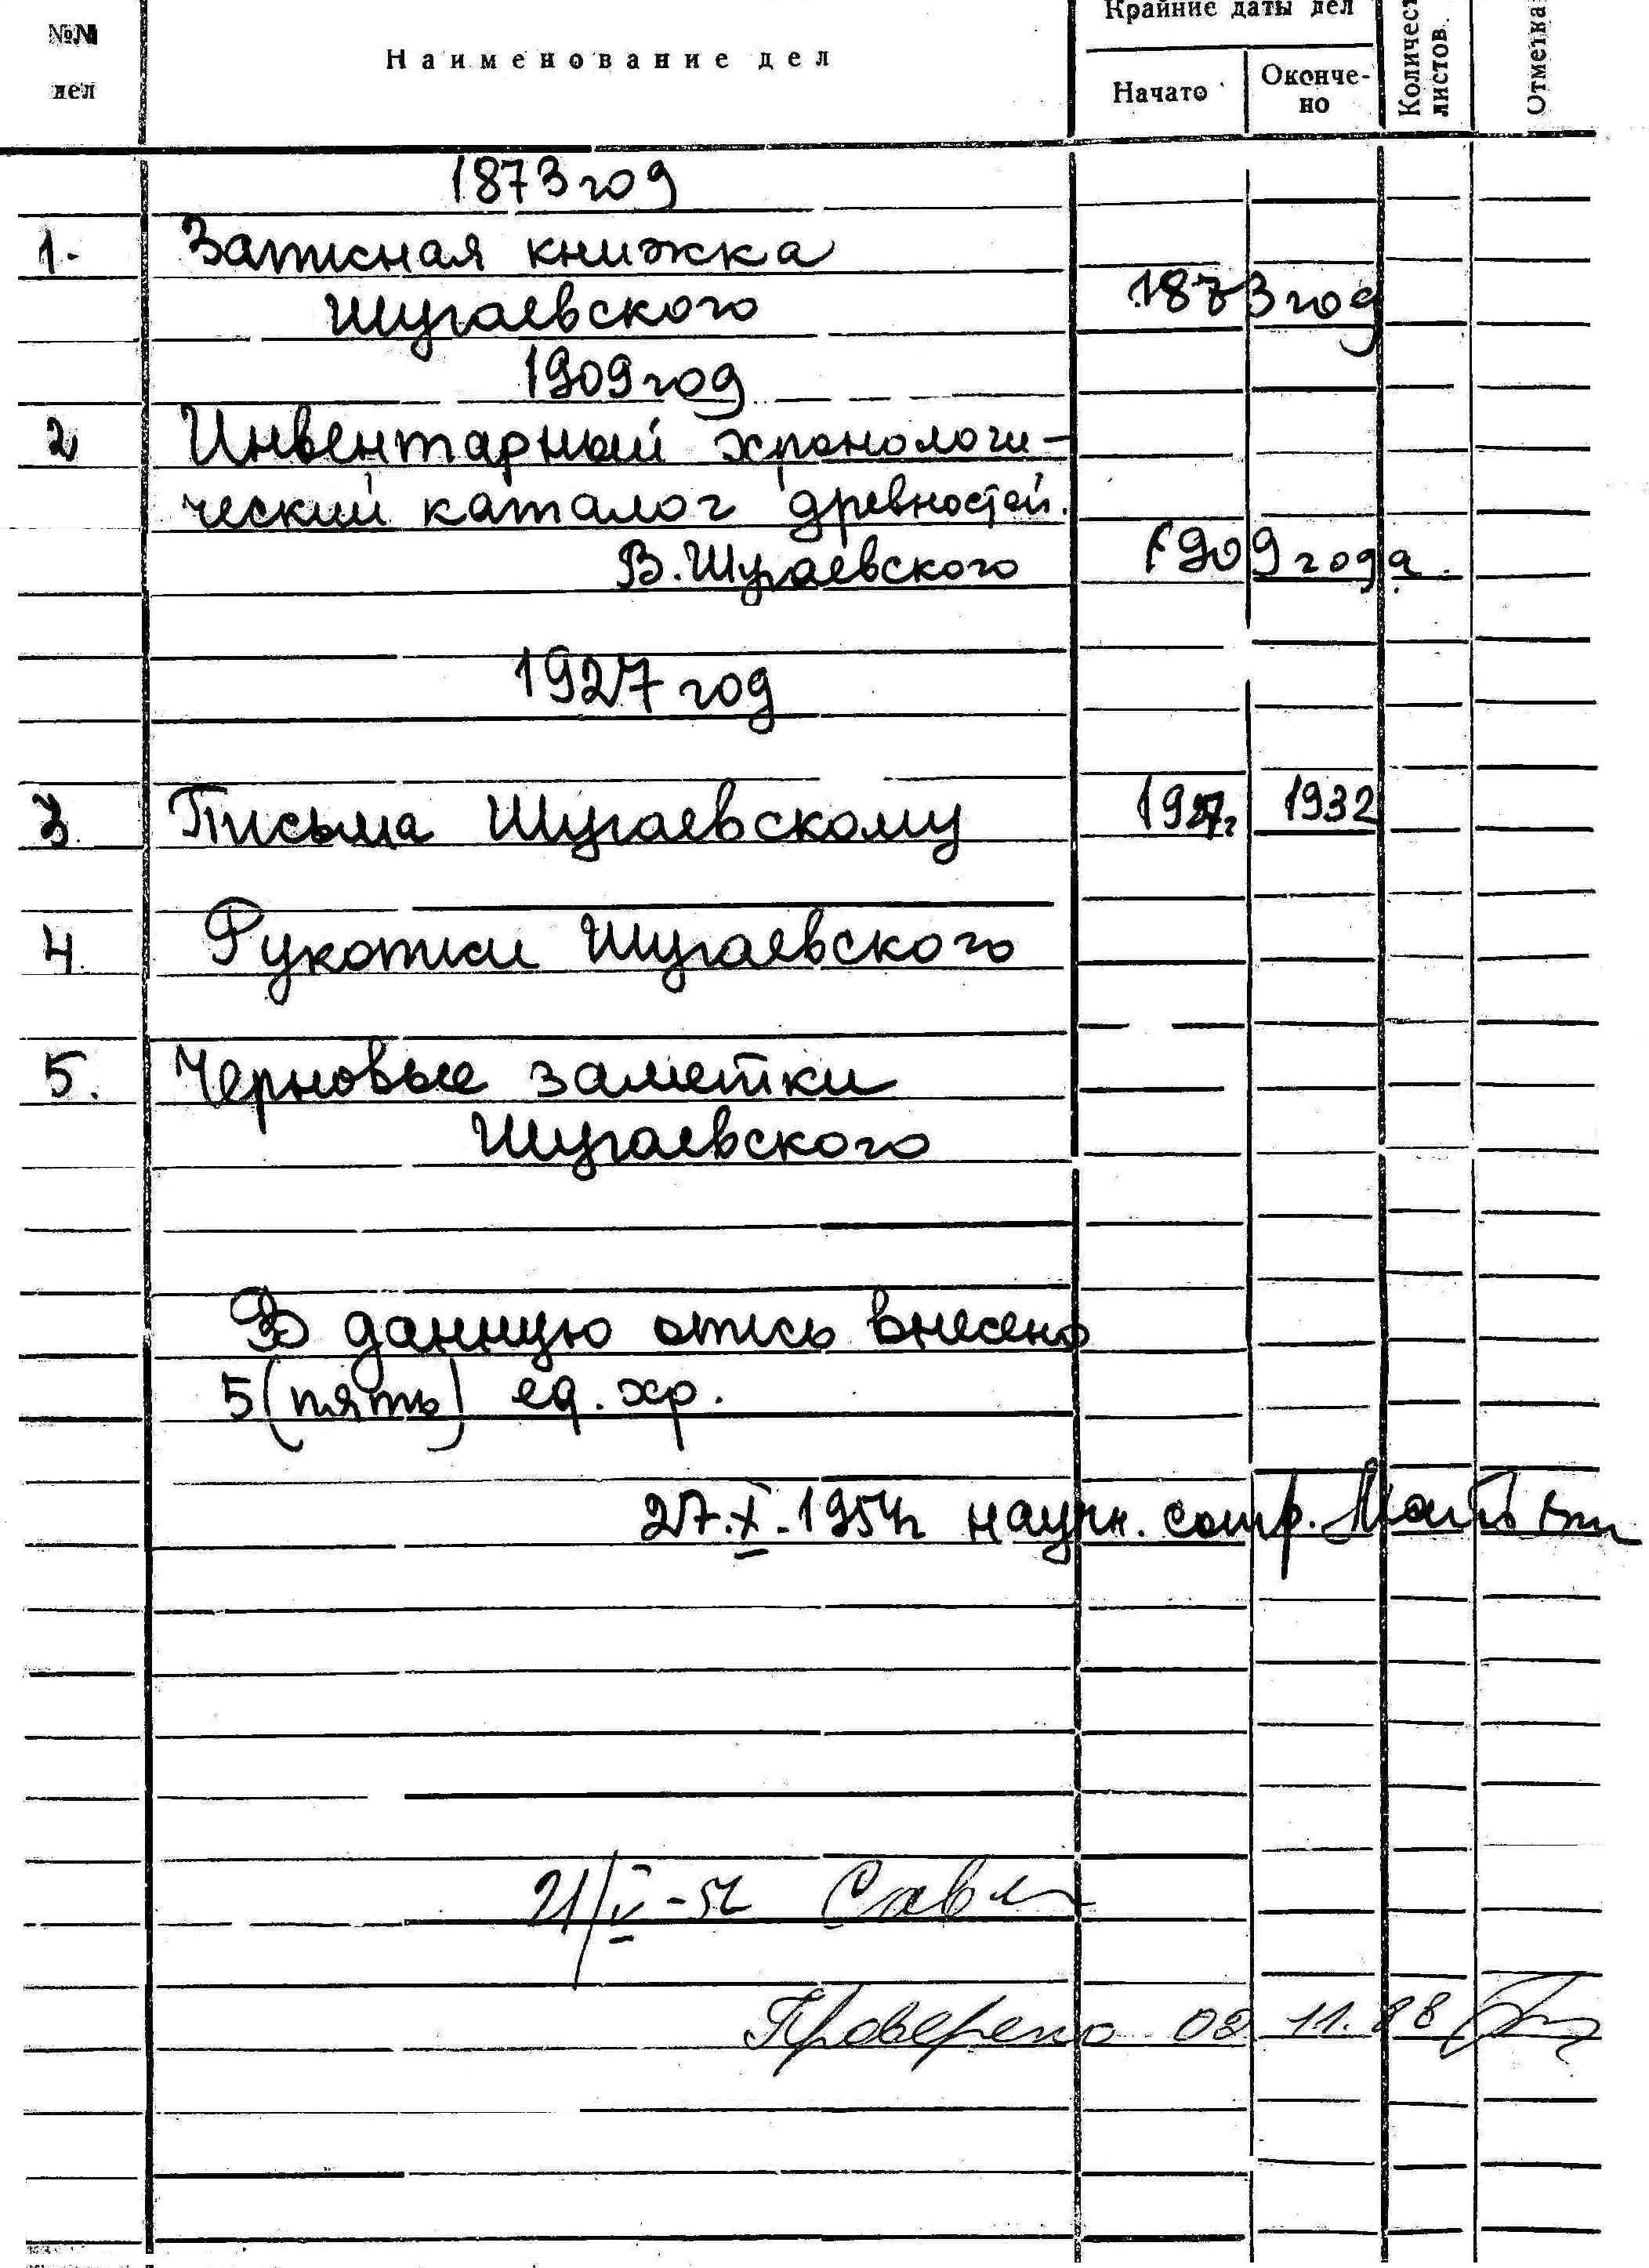 №№ дел
Наименование дел
Крайние даты дел
Начато
Окончено-
но
Количест
листов.
Отметка
1873 год
1. Записная книжка
Шугаевского 1873 год
1909 год
2 Инвентарный хронологи-
ческий каталог древностей.
В. Шугаевского 1909 года.
1927 год
3. Письма Шугаевскому 1927г 1932
4. Рукописи Шугаевского
5. Черновые заметки
Шугаевского
В данную опись внесено
5 (пять) ед. хр.
27.X.1954г научн. сотр.
21/V-54
Проверено 02 11.88